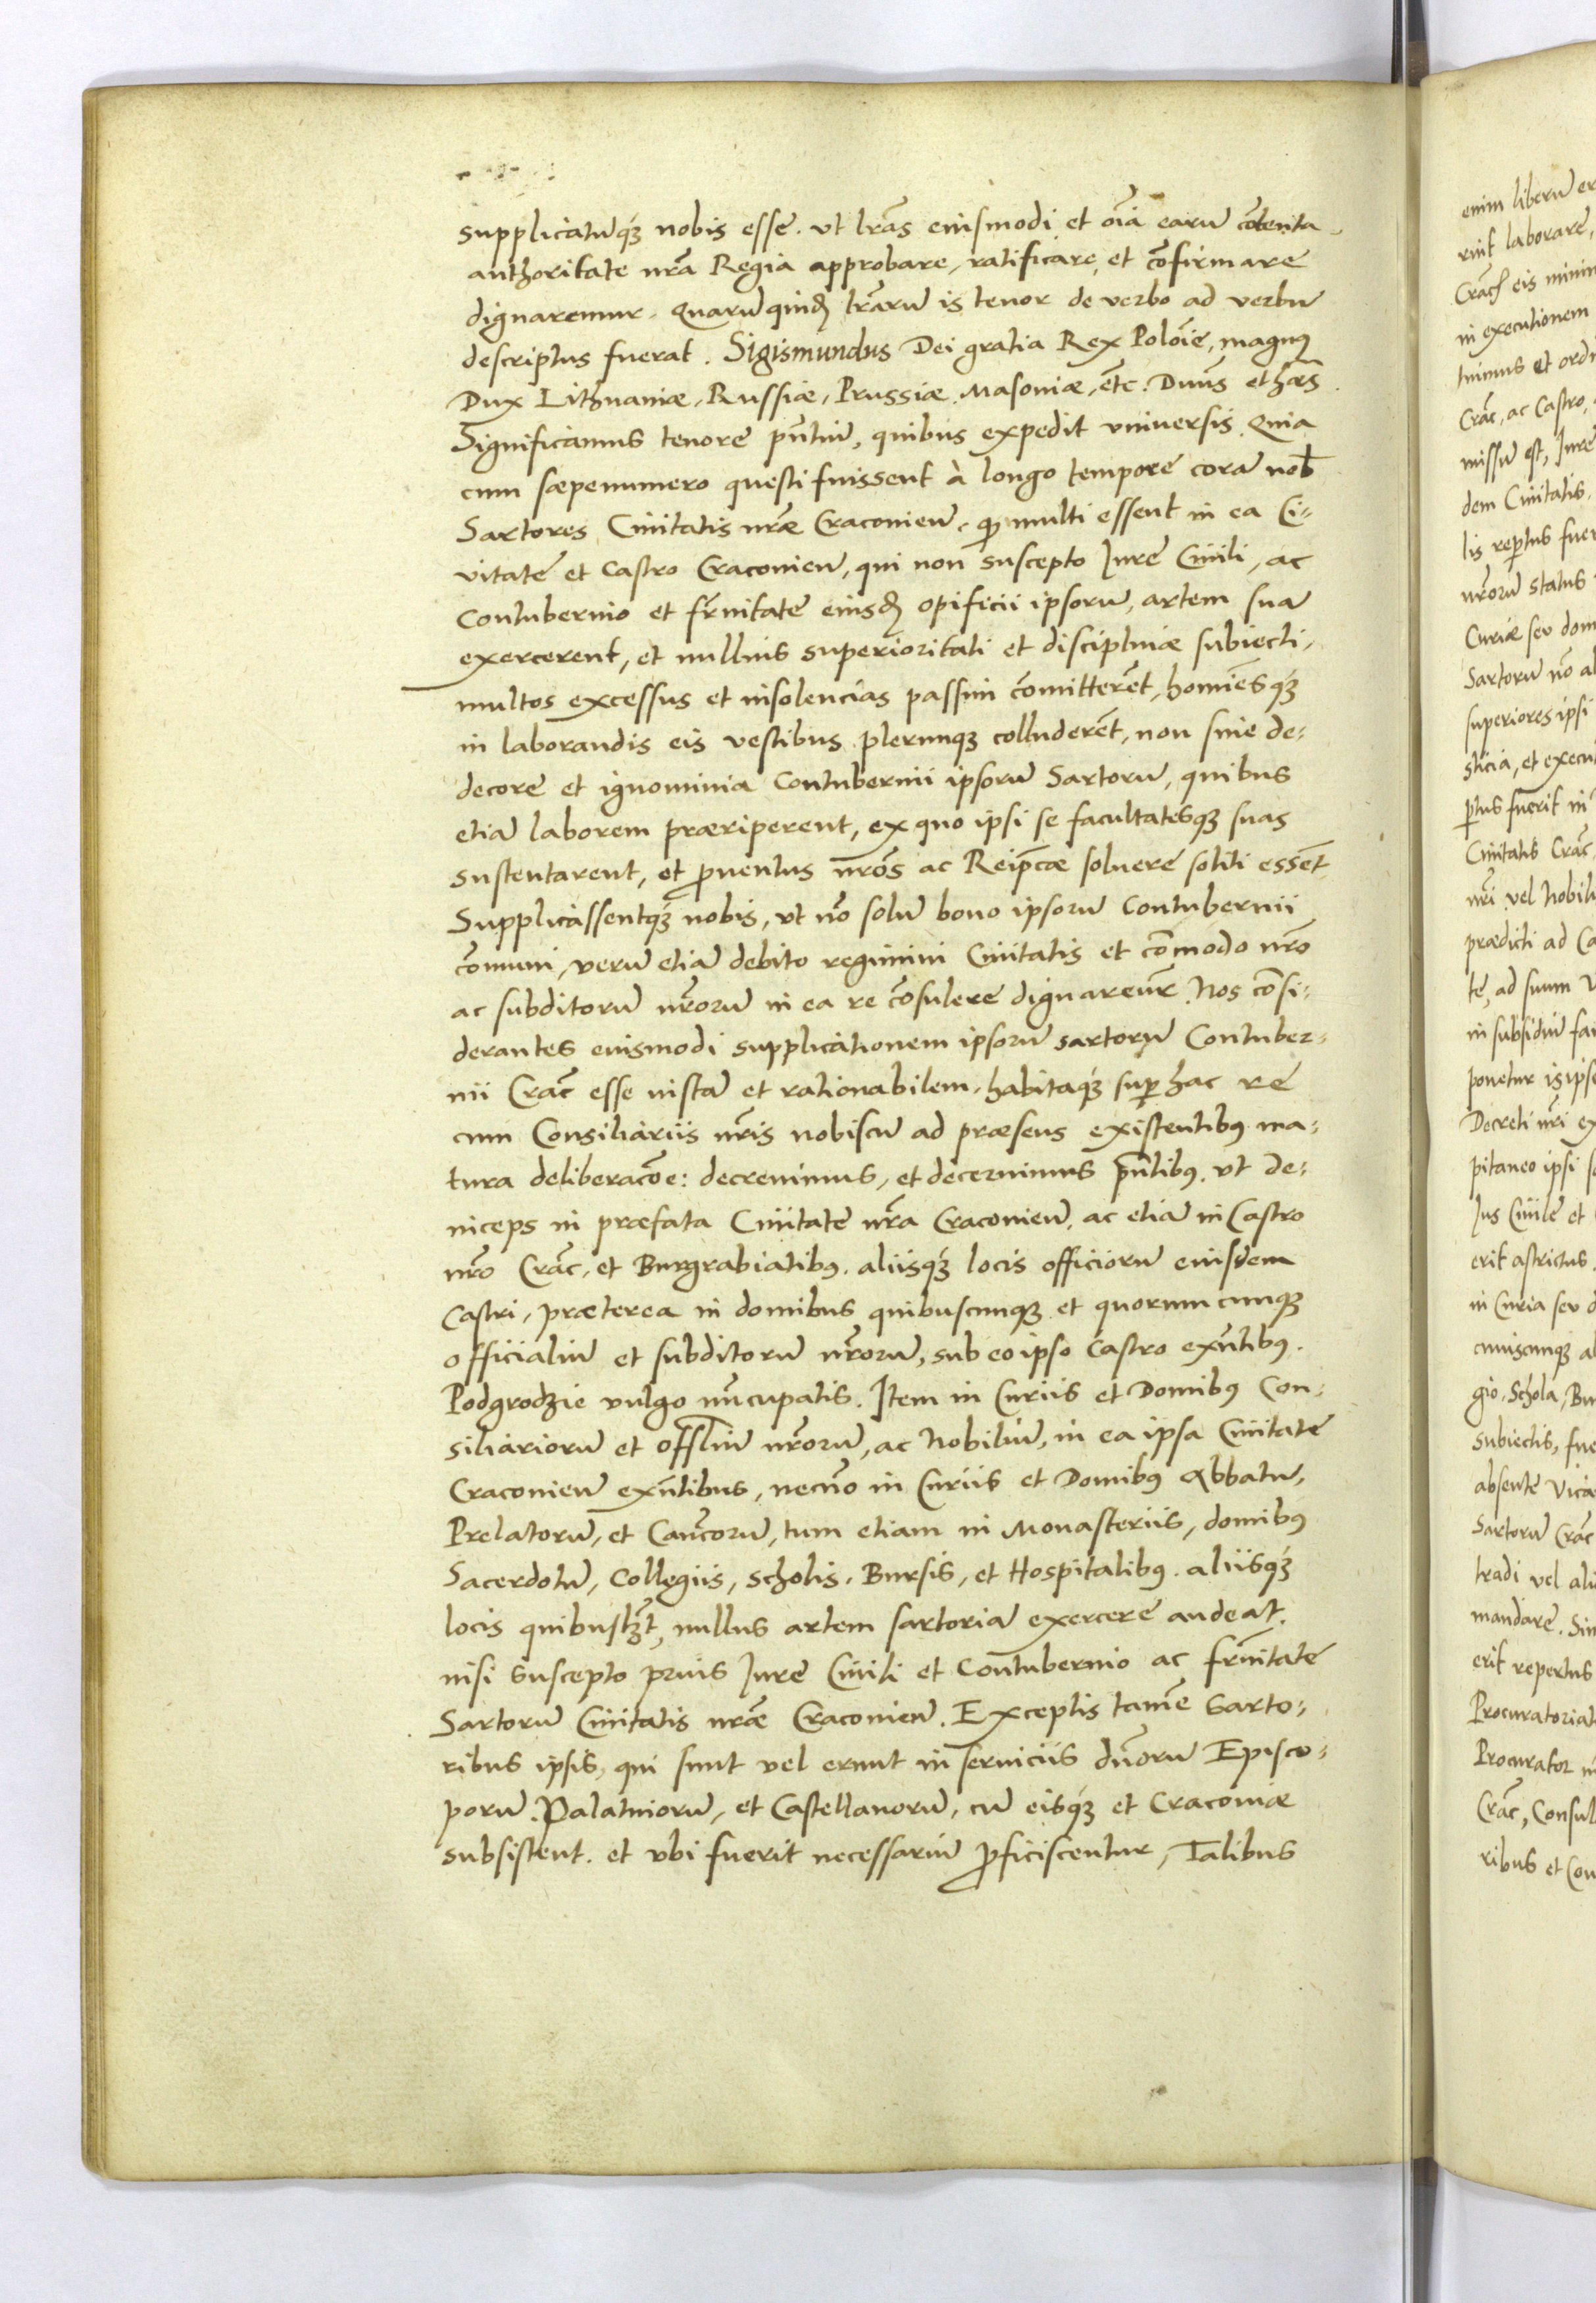 supplicatuq; nobis esse. vt lr̃as eiusmodi et oĩa earũ cõtenta
authoritate nr̃a Regia approbare, ratificare, et cõfirmare
dignaremur. Quarũ quidẽ lr̃arũ is tenor de verbo ad verbũ
descriptus fuerat. Sigismundus Dei gratia Rex Polõie, magnus
Dux Lithuaniæ, Russiæ, Prussiæ, Masoniæ, etc. Dñus et hæs.
Significamus tenore pñtiũ, quibus expedit vniuersis. Quia
cum sæpenumero questi fuissent à longo tempore corã nob
Sartores Ciuitatis nr̃æ Cracouien, q multi essent in ea Ci-
vitate et Castro Cracouien, qui non suscepto Iure Ciuili, ac
Contubernio et fr̃nitate eiusdẽ opificii ipsorũ, artem suã
exercerent, et nullius superioritati et disciplinæ subiecti,
multos excessus et insolencias passim cõmitterẽt, homĩesq;
in laborandis eis vestibus plerunq; colluderẽt, non sine de-
decore et ignominia Contubernii ipsorũ Sartorũ, quibus
etiã laborem præriperent, ex quo ipsi se facultatesq; suas
sustentarent, et prouentus nr̃os ac Reipcæ soluere soliti essẽt
Supplicassentq; nobis, vt nõ solũ bono ipsorũ Contubernii
cõmuni, verũ etiã debito regimini Ciuitatis et cõmodo nr̃o
ac subditorũ nr̃orũ in ea re cõsulere dignaremr̃. Nos cõsi-
derantes eiusmodi supplicationem ipsorũ sartorũ Contuber-
nii Crac̃ esse iustã et rationabilem, habitaq; sup hac re
cum Consiliariis nr̃is nobiscũ ad præsens existentibus ma-
tura deliberacõe: decreuimus, et decernimus pñtibus. vt de-
niceps in præfata Ciuitate nr̃a Cracouien, ac etiã in Castro
nr̃o Crac̃, et Burgrabiatibus, aliisq; locis officiorũ eiusdem
Castri, præterea in domibus quibuscunq; et quorumcunq;
officialiũ et subditorũ nr̃orũ, sub eo ipso Castro exñtibus.
Podgrodzie vulgo nũcupatis. Item in Curiis et Domibus Con-
siliariorũ et offliũ nr̃orũ, ac Nobiliũ, in ea ipsa Ciuitate
Cracouien exñtibus, necnõ in Curiis et Domibus Abbatũ,
Prelatorũ, et Cancorũ, tum etiam in Monasteriis, domibus
Sacerdotũ, Collegiis, Scholis, Bursis, et Hospitalibus. aliisq;
locis quibuslzt, nullus artem sartoriã exercere audeat.
nisi suscepto prius Iure Ciuili et Contubernio ac fr̃nitate
Sartorũ Ciuitatis nr̃æ Cracouien. Exceptis tamẽ Sarto-
ribus ipsis, qui sunt vel erunt in seruiciis dñorũ Episco-
porũ, Palatinorũ, et Castellanorũ, cũ eisq; et Cracouiæ
subsistent. et vbi fuerit necessariũ proficiscentur, Talibus
enim liberũ er
rint laborare,
Crac̃ eis minim
in executionem
tuimus et ordi
Crac̃, ac Castro,
missũ est, Iure
dem Ciuitatis.
lis repertus fuer
nr̃orũ status
Curiæ seu dom
Sartorũ nõ al
superiores ipsi
sticia, et execut
ptus fuerit in
Ciuitatis Crac̃
nr̃i vel Nobili
prædicti ad Ca
te, ad suum
in subsidiũ fam
ponetur is ipse
Decreti nr̃i ex
pitaneo ipsi
Ius Ciuile et
erit astrictus.
in Curia seu d
cuiuscunq; al
gio, Schola, Bur
subiectis, fue
absente Vica
Sartorũ Crac̃
tradi vel ali
mandare. Sin
erit repertus
Procuratoriat
Procurator
Crac̃, Consul
ribus et Con